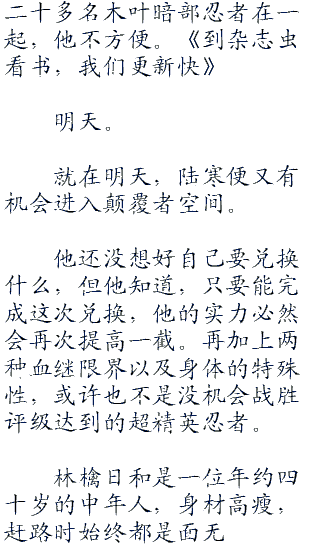 二十多名木叶暗部忍者在一
起，他不方便。《到杂志虫
看书，我们更新快》
明天。
就在明天，陆寒便又有
机会进入颠覆者空间。
他还没想好自己要兑换
什么，但他知道，只要能完
成这次兑换，他的实力必然
会再次提高一截。再加上两
种血继限界以及身体的特殊
性，或许也不是没机会战胜
评级达到的超精英忍者。
林檎日和是一位年约四
十岁的中年人，身材高瘦，
赶路时始终都是面无